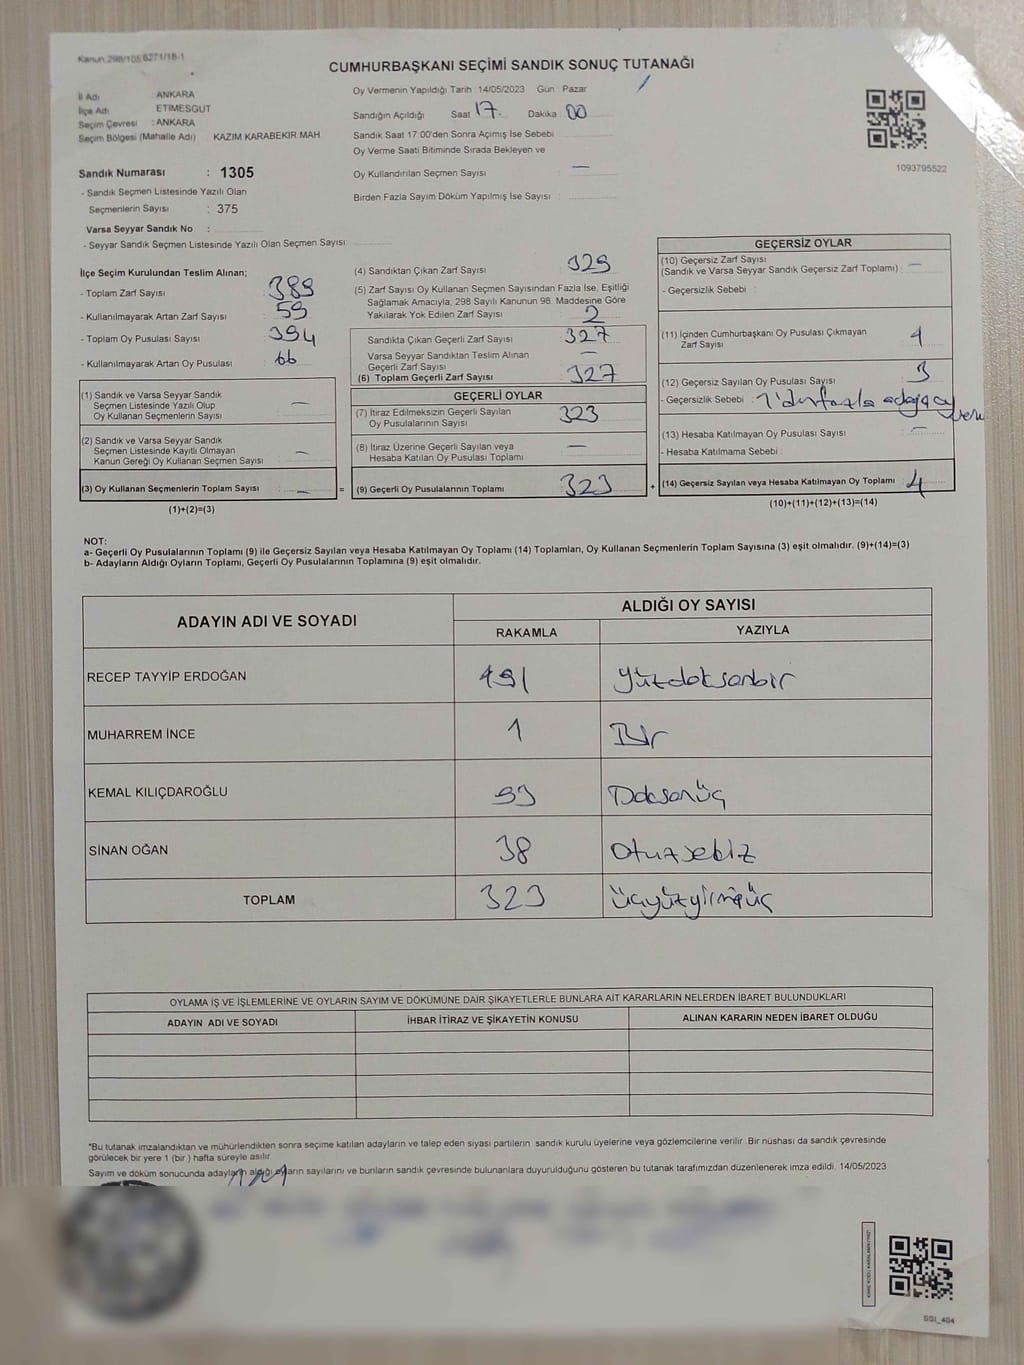 Kanun 298/105;6271/18-1
CUMHURBAŞKANI SEÇİMİ SANDIK SONUÇ TUTANAĞI
İl Adı : ANKARA
İlçe Adı : ETİMESGUT
Seçim Çevresi : ANKARA
Seçim Bölgesi (Mahalle Adı) KAZIM KARABEKİR MAH
Sandık Numarası : 1305
- Sandık Seçmen Listesinde Yazılı Olan
Seçmenlerin Sayısı : 375
Varsa Seyyar Sandık No :
- Seyyar Sandık Seçmen Listesinde Yazılı Olan Seçmen Sayısı:
Oy Vermenin Yapıldığı Tarih : 14/05/2023 Gün : Pazar
Sandığın Açıldığı Saat 17 Dakika 00
Sandık Saat 17:00'den Sonra Açımış İse Sebebi
Oy Verme Saati Bitiminde Sırada Bekleyen ve
Oy Kullandırılan Seçmen Sayısı : —
Birden Fazla Sayım Döküm Yapılmış İse Sayısı :
1093795522
İlçe Seçim Kurulundan Teslim Alınan;
- Toplam Zarf Sayısı : 389
- Kullanılmayarak Artan Zarf Sayısı : 59
- Toplam Oy Pusulası Sayısı : 394
- Kullanılmayarak Artan Oy Pusulası : 66
(1) Sandık ve Varsa Seyyar Sandık
Seçmen Listesinde Yazılı Olup
Oy Kullanan Seçmenlerin Sayısı : —
(2) Sandık ve Varsa Seyyar Sandık
Seçmen Listesinde Kayıtlı Olmayan
Kanun Gereği Oy Kullanan Seçmen Sayısı : —
(3) Oy Kullanan Seçmenlerin Toplam Sayısı : — =
(1)+(2)=(3)
(4) Sandıktan Çıkan Zarf Sayısı : 329
(5) Zarf Sayısı Oy Kullanan Seçmen Sayısından Fazla İse, Eşitliği
Sağlamak Amacıyla, 298 Sayılı Kanunun 98. Maddesine Göre
Yakılarak Yok Edilen Zarf Sayısı : 2
Sandıkta Çıkan Geçerli Zarf Sayısı : 327
Varsa Seyyar Sandıktan Teslim Alınan
Geçerli Zarf Sayısı : —
(6) Toplam Geçerli Zarf Sayısı : 327
GEÇERLİ OYLAR
(7) İtiraz Edilmeksizin Geçerli Sayılan
Oy Pusulalarının Sayısı : 323
(8) İtiraz Üzerine Geçerli Sayılan veya
Hesaba Katılan Oy Pusulası Toplamı : —
(9) Geçerli Oy Pusulalarının Toplamı : 323 +
GEÇERSİZ OYLAR
(10) Geçersiz Zarf Sayısı
(Sandık ve Varsa Seyyar Sandık Geçersiz Zarf Toplamı) : —
- Geçersizlik Sebebi :
(11) İçinden Cumhurbaşkanı Oy Pusulası Çıkmayan
Zarf Sayısı : 1
(12) Geçersiz Sayılan Oy Pusulası Sayısı : 3
- Geçersizlik Sebebi : 1'den fazla adaya oy
(13) Hesaba Katılmayan Oy Pusulası Sayısı : —
- Hesaba Katılmama Sebebi :
(14) Geçersiz Sayılan veya Hesaba Katılmayan Oy Toplamı : 4
(10)+(11)+(12)+(13)=(14)
NOT:
a- Geçerli Oy Pusulalarının Toplamı (9) ile Geçersiz Sayılan veya Hesaba Katılmayan Oy Toplamı (14) Toplamları, Oy Kullanan Seçmenlerin Toplam Sayısına (3) eşit olmalıdır. (9)+(14)=(3)
b- Adayların Aldığı Oyların Toplamı, Geçerli Oy Pusulalarının Toplamına (9) eşit olmalıdır.
ADAYIN ADI VE SOYADI ALDIĞI OY SAYISI
RAKAMLA YAZIYLA
RECEP TAYYİP ERDOĞAN 191 Yüzdoksanbir
MUHARREM İNCE 1 Bir
KEMAL KILIÇDAROĞLU 93 Doksanüç
SİNAN OĞAN 38 Otuzsekiz
TOPLAM 323 üçyüzyirmiüç
OYLAMA İŞ VE İŞLEMLERİNE VE OYLARIN SAYIM VE DÖKÜMÜNE DAİR ŞİKAYETLERLE BUNLARA AİT KARARLARIN NELERDEN İBARET BULUNDUKLARI
ADAYIN ADI VE SOYADI İHBAR İTİRAZ VE ŞİKAYETİN KONUSU ALINAN KARARIN NEDEN İBARET OLDUĞU
*Bu tutanak imzalandıktan ve mühürlendikten sonra seçime katılan adayların ve talep eden siyasi partilerin sandık kurulu üyelerine veya gözlemcilerine verilir. Bir nüshası da sandık çevresinde
görülecek bir yere 1 (bir ) hafta süreyle asılır.
Sayım ve döküm sonucunda adayların aldığı oyların sayılarını ve bunların sandık çevresinde bulunanlara duyurulduğunu gösteren bu tutanak tarafımızdan düzenlenerek imza edildi. 14/05/2023
SSI_404